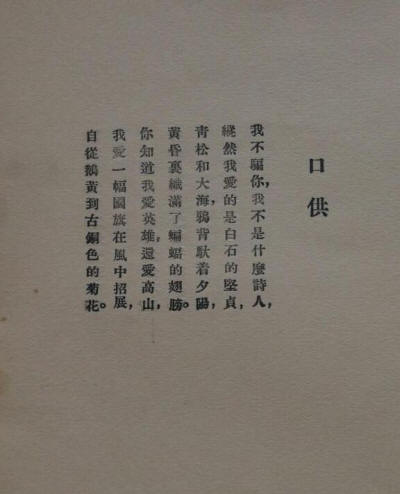 口供
我不騙你，我不是什麼詩人，
縱然我愛的是白石的堅貞，
青松和大海，鴉背馱着夕陽，
黃昏裏織滿了蝙蝠的翅膀。
你知道我愛英雄，還愛高山，
我愛一幅國旗在風中招展，
自從鵝黃到古銅色的菊花。